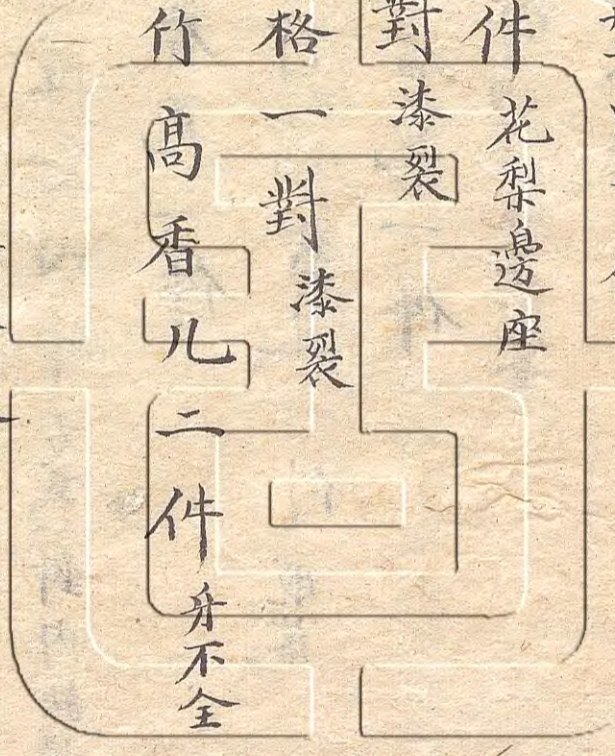 件花梨邊座
對漆裂
格一對漆裂
竹高香几二件牙不全